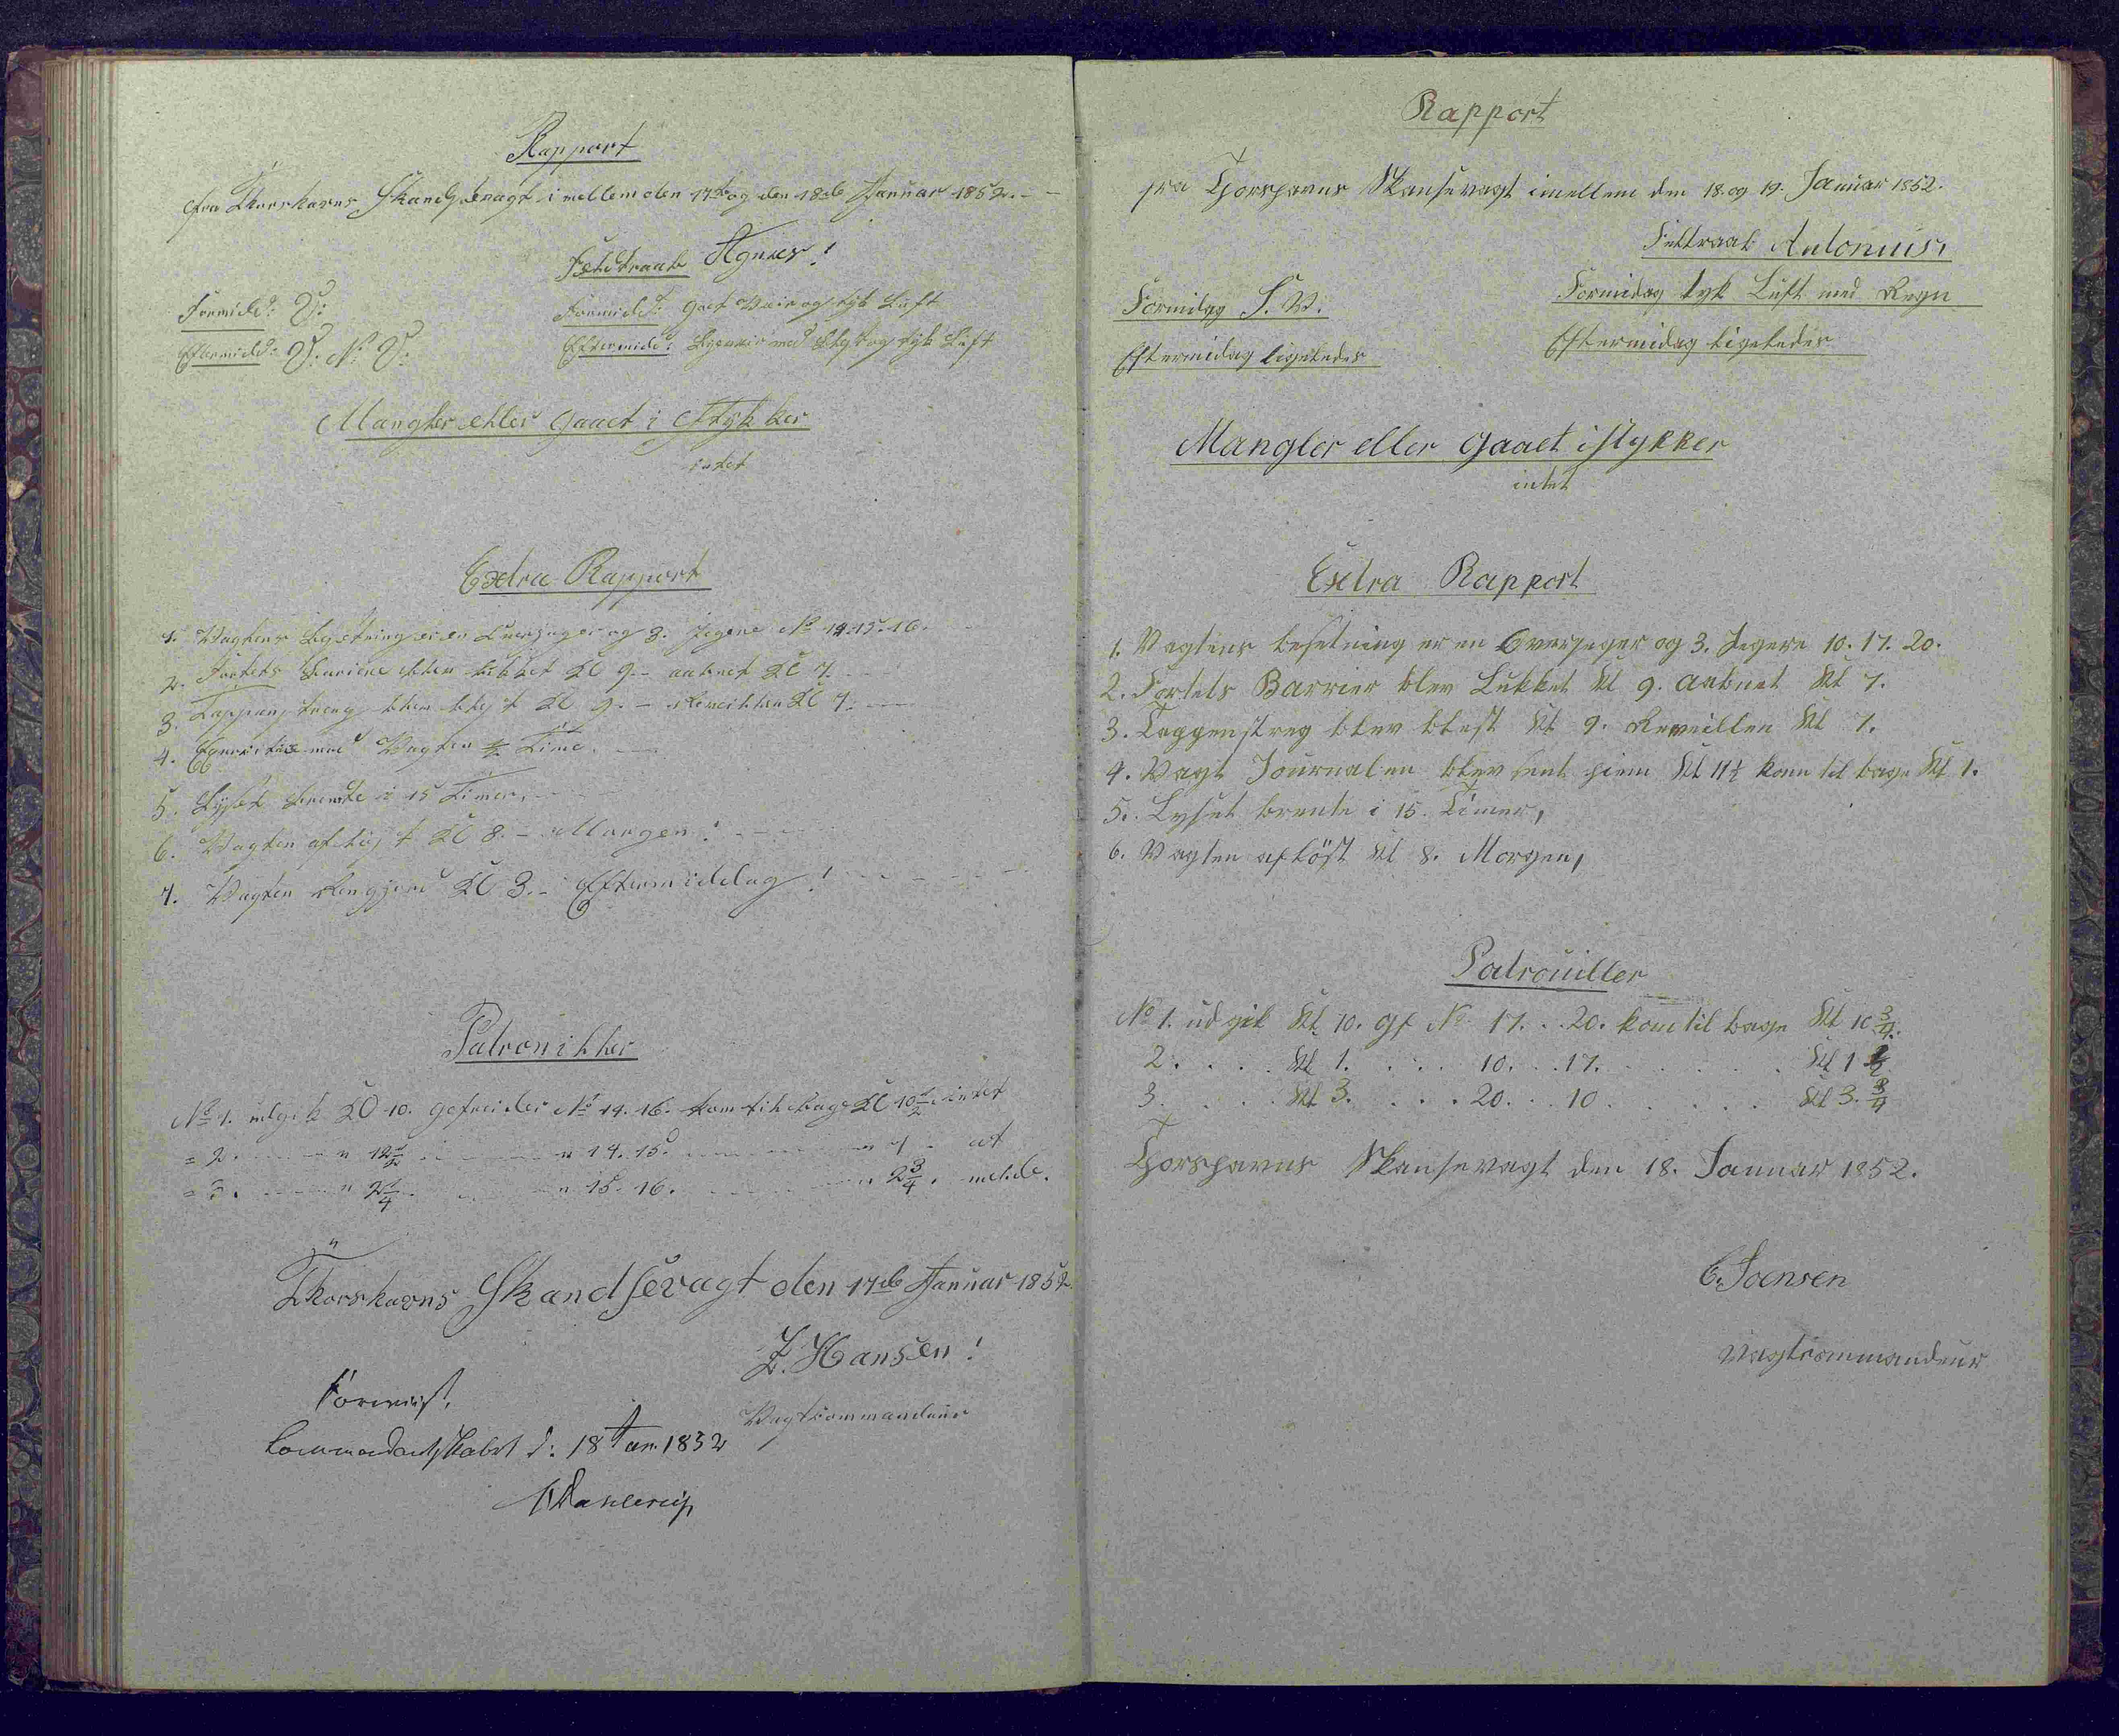 Rapport
fra Thorshavns Skandsevagt imellem den 17de og den 18de Januar 1852.
Feltraab Agnes!
Formidd: V:
Formidd: Goet Veir og tyk Luft
Eftermidd: V: N: V:
Eftermidd: med Slyd og tyk Luft
Mangler eller Gaaet i Stykker
intet
Extra Rapport
1. Vagtens besetning er en Overjeger og 3. Jegere No 14. 15. 16.
2. Fortets Bariere blev lukket Kl 9. - aabnet Kl 7.
3. Tappenstreg blev blest Kl 9. - Reveillen Kl 7.
4. Exersitie med Vagten 1/2 Time.
5. Lyset brendte i 15 Timer.
6. Vagten aflöst Kl 8. - Morgen!
7. Vagten Rengjord Kl 3. - Eftermiddag!
Patroniller
No 1. udgik Kl 10. gefreider No 14. 16. kom tilbage Kl 10 1/2 intet
= 2. " 12 1/2 " 14. 15. " 1. at
= 3. " 2 1/4 " 15. 16. " 2 3/4. melde.
Thorshavns Skandsevagt den 17de Januar 1852
Z. Hansen!
Vagtcommandeur
Forevist.
Commandantskabet d: 18 Jan. 1852
Dahlerup
Rapport
fra Thorshavns Skansevagt imellem den 18. og 19. Januar 1852.
Feltraab Antonius,
Formidag S. W.
Formidag tyk Luft med Regn
Eftermidag ligeledes
Eftermidag ligeledes
Mangler eller Gaaet istykker
intet
Extra Rapport
1. Vagtens besetning er en Overjeger og 3. Jegere 10. 17. 20.
2. Fortets Barrier blev Lukket Kl 9. aabnet Kl 7.
3. Tappenstreg blev blest Kl 9. Reveillen Kl 7.
4. Vagt Journalen blev sent hiem Kl 11 1/2 kom til bage Kl 1.
5. Lyset brente i 15. Timer,
6. Vagten aflöst Kl 8. Morgen,
Patrouiller
No 1. udgik Kl 10. Gf No 17. . 20. kom til bage Kl 10 3/4.
2. . . . Kl 1. . . . 10. . . 17. . . . . . . Kl 1 1/2
3. . . . Kl 3. . . . 20. . . 10 . . . . . . Kl 3. 3/4
Thorshavns Skansevagt den 18. Januar 1852.
C. Jansen
Vagtcommandeur